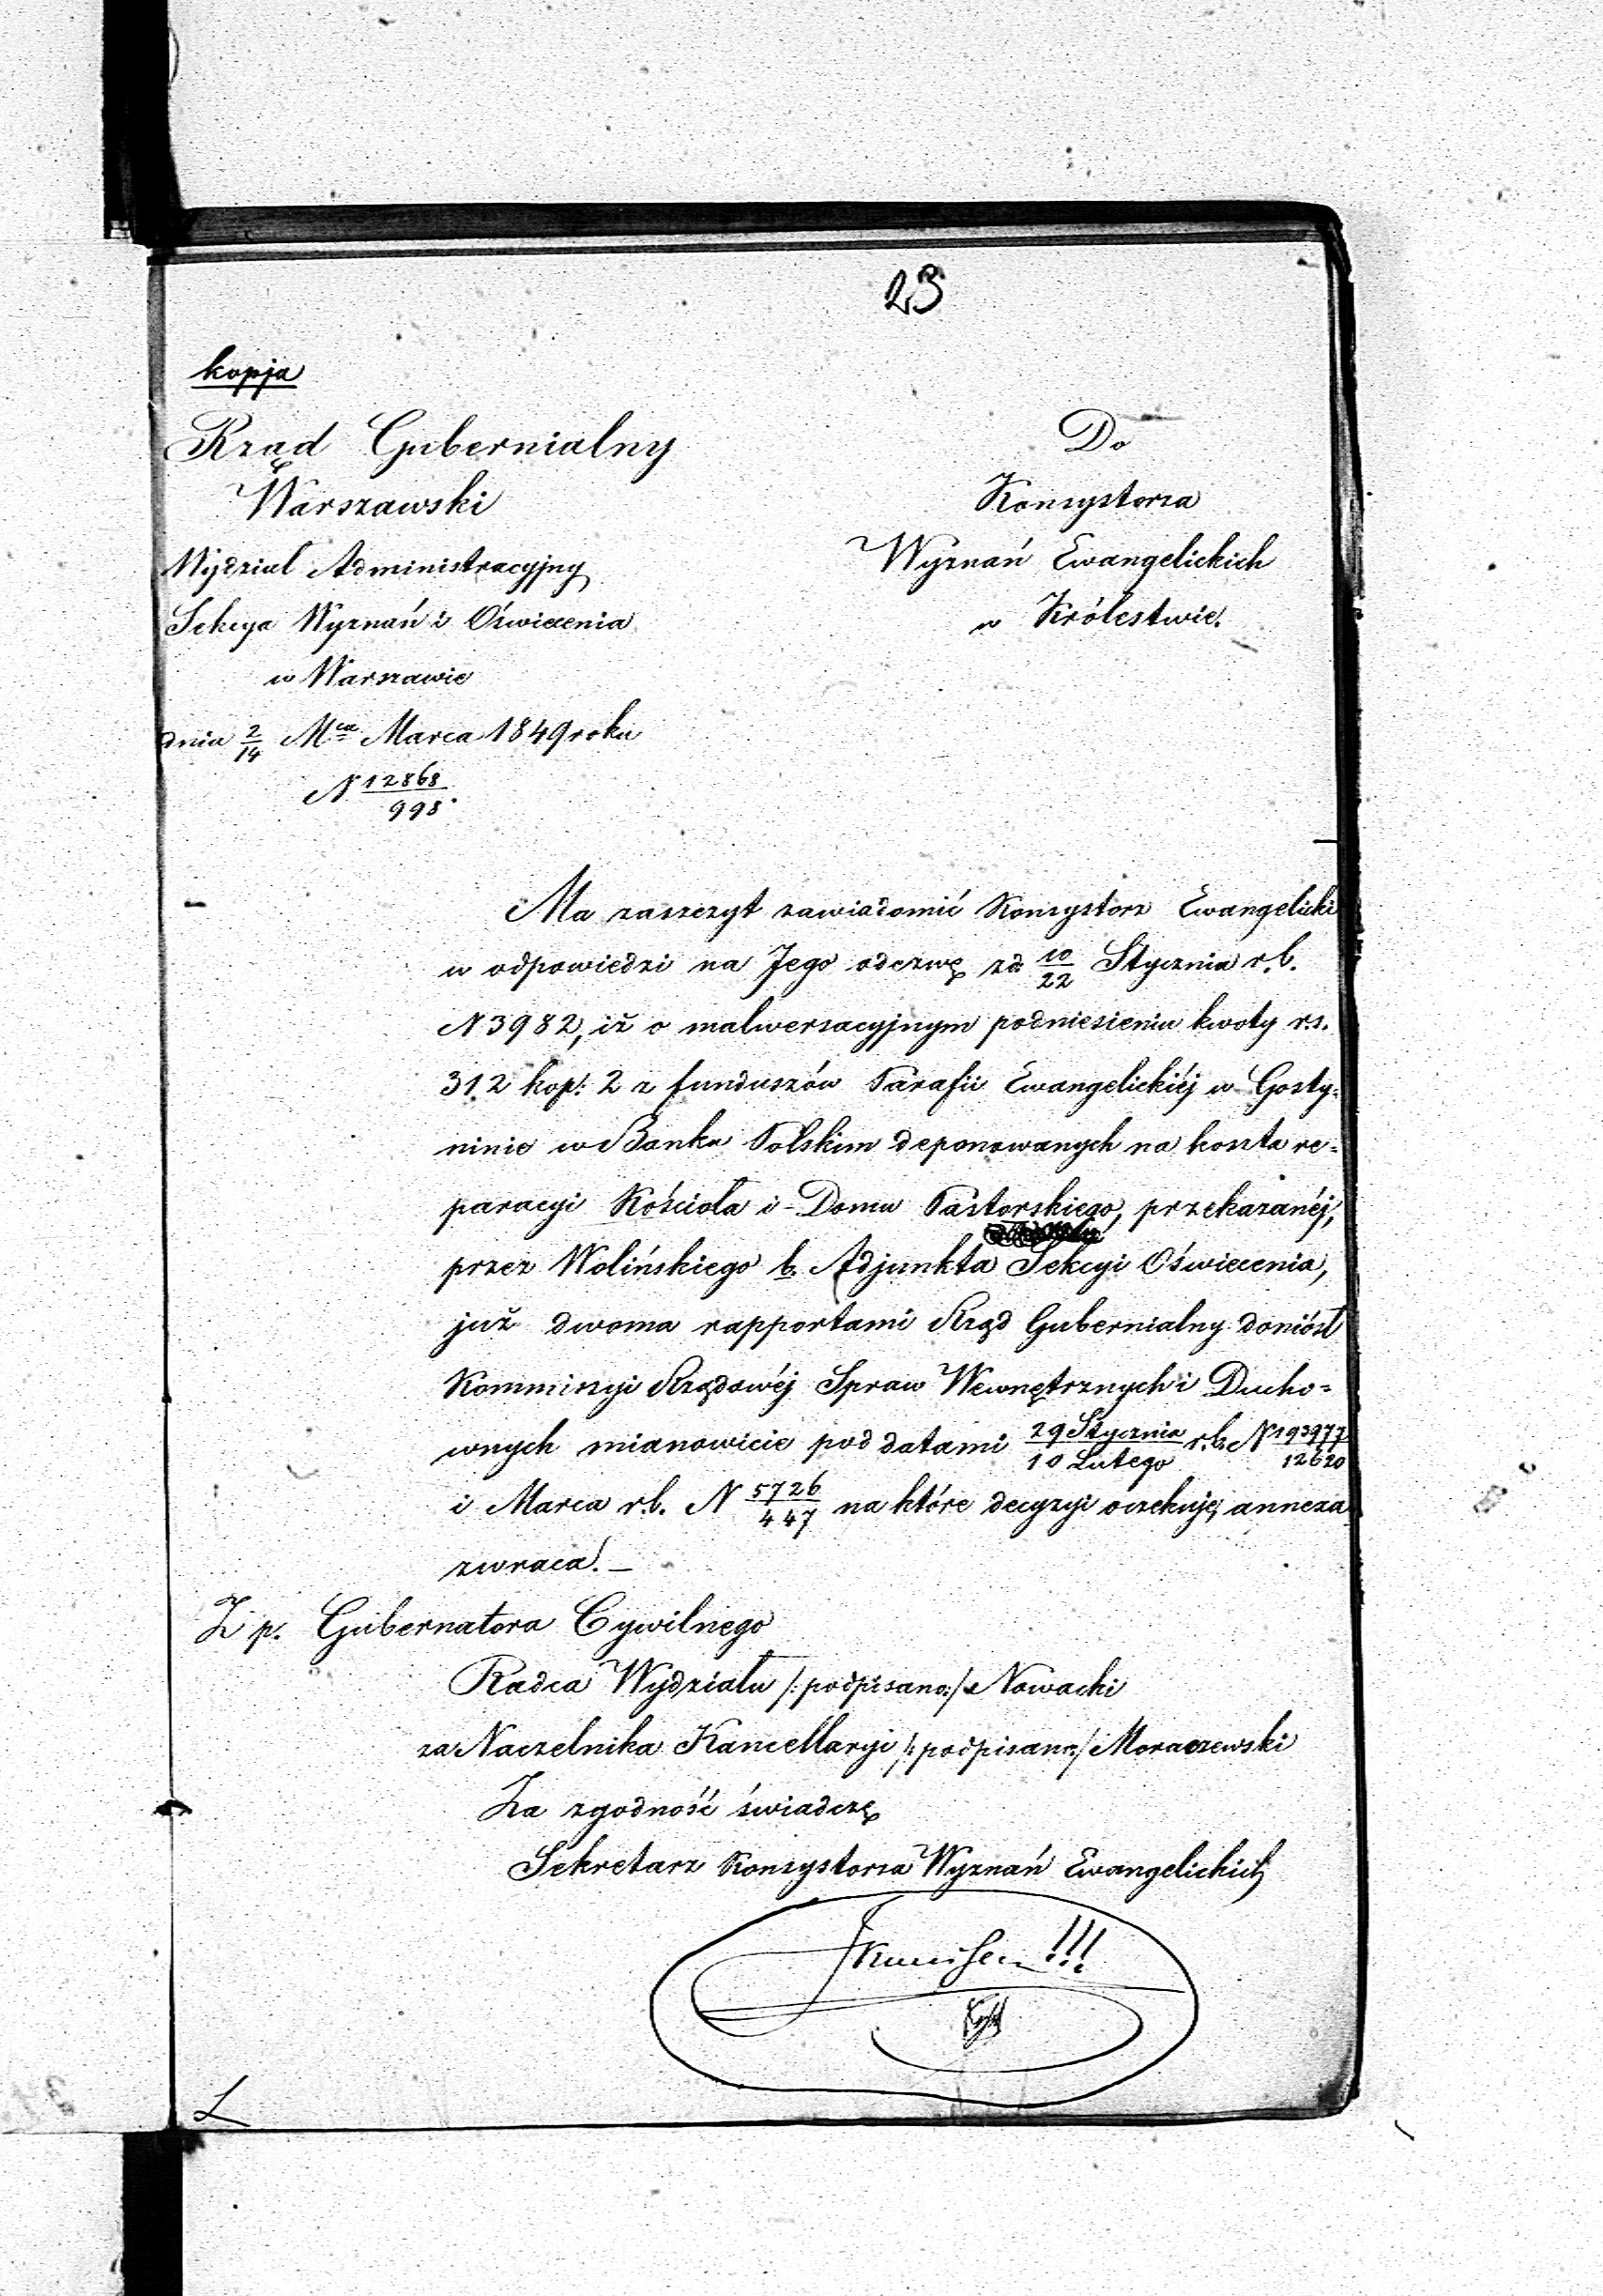 23
kopja
Rząd Gubernialny
Warszawski
Wydział Administracyjny
Sekcya Wyznań i Oświecenia
w Warszawie
dnia 2/14 Mca Marca 1849 roku
N 12868/998.
Do
Konsystorza
Wyznań Ewangelickich
w Królestwie.
Ma zaszczyt zawiadomić Konsystorz Ewangelicki
w odpowiedzi na Jego odezwę zd. 10/22 Stycznia r.b.
N 3982, iż o malwersacyjnym podniesieniu kwoty r.s.
312 kop: 2 z funduszów Parafii Ewangelickiéj w Gosty-
ninie w Banku Polskim deponowanych na koszta re-
paracyi Kościoła i Domu Pastorskiego, przekazanéj,
przez Wolińskiego b. Adjunkta Sekcyi Oświecenia,
już dwoma rapportami Rząd Gubernialny doniósł
Kommissyi Rządowéj Spraw Wewnętrznych i Ducho-
wnych mianowicie pod datami 29 Stycznia/10 Lutego r.b. N 193977/12620
i Marca r.b. N 5726/447 na które decyzyi oczekuje, annexa
zwraca. —
Z p. Gubernatora Cywilnego
Radca Wydziału /: podpisano :/ Nowacki
za Naczelnika Kancellaryi /: podpisano :/ Moraczewski
Za zgodność świadczę
Sekretarz Konsystorza Wyznań Ewangelickich